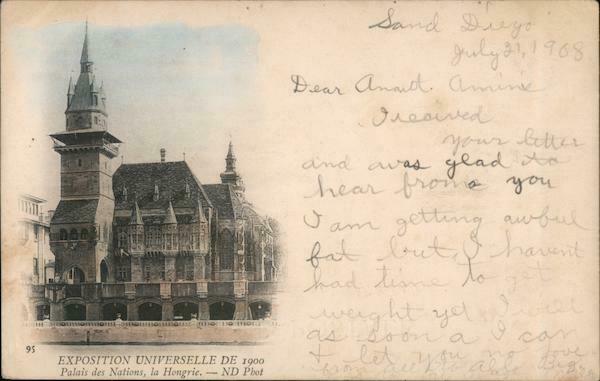 Sand Diego
July 21, 1908
Dear Anaut. Amine
I received
your letter
and awas glad to
hear from you
I am getting awful
fat but I havent
had time to get
weight yet I will
as soon a I can
+ let you no love
from all to
95
EXPOSITION UNIVERSELLE DE 1900
Palais des Nations, la Hongrie. — ND Phot